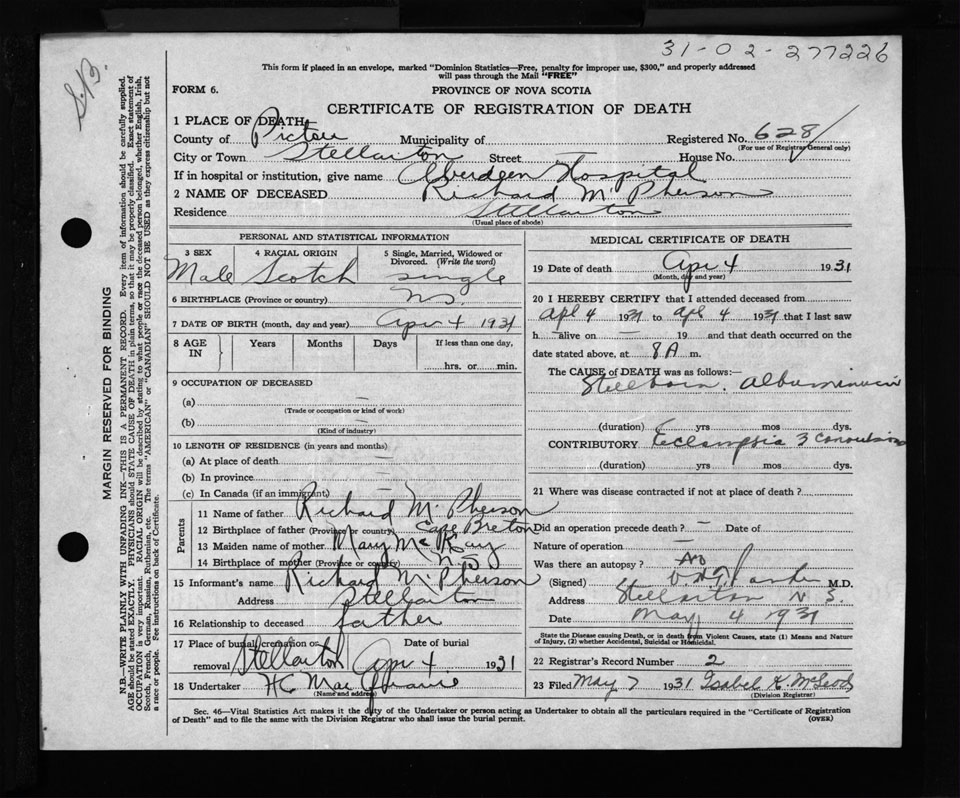 31-02-277226
S.B.
This form if placed in an envelope, marked "Dominion Statistics—Free, penalty for improper use, $300," and properly addressed
will pass through the Mail "FREE"
FORM 6. PROVINCE OF NOVA SCOTIA
CERTIFICATE OF REGISTRATION OF DEATH
1 PLACE OF DEATH
County of Pictou Municipality of Registered No. 628
(For use of Registrar General only)
City or Town Stellarton Street House No.
If in hospital or institution, give name Aberdeen Hospital
2 NAME OF DECEASED Richard McPherson
Residence Stellarton
(Usual place of abode)
PERSONAL AND STATISTICAL INFORMATION
3 SEX 4 RACIAL ORIGIN 5 Single, Married, Widowed or
Divorced. (Write the word)
Male Scotch single
6 BIRTHPLACE (Province or country) N.S.
7 DATE OF BIRTH (month, day and year) Apr 4 1931
8 AGE IN Years Months Days If less than one day,
hrs. or min.
9 OCCUPATION OF DECEASED
(a) —
(Trade or occupation or kind of work)
(b) —
(Kind of industry)
10 LENGTH OF RESIDENCE (in years and months)
(a) At place of death —
(b) In province —
(c) In Canada (if an immigrant) —
Parents
11 Name of father Richard McPherson
12 Birthplace of father (Province or country) Cape Breton
13 Maiden name of mother Mary McKay
14 Birthplace of mother (Province or country) N S
15 Informant's name Richard McPherson
Address Stellarton
16 Relationship to deceased father
17 Place of burial, cremation or Date of burial
removal Stellarton Apr 4 1931
18 Undertaker H C Mac
(Name and address)
MEDICAL CERTIFICATE OF DEATH
19 Date of death Apr 4 1931
(Month, day and year)
20 I HEREBY CERTIFY that I attended deceased from
Apl 4 1931 to Apl 4 1931 that I last saw
h alive on 19 and that death occurred on the
date stated above, at 8 A m.
The CAUSE of DEATH was as follows:—
Stillborn. Albuminuria
(duration) yrs mos dys.
CONTRIBUTORY Eclampsia 3 convulsions
(duration) yrs mos dys.
21 Where was disease contracted if not at place of death?
Did an operation precede death? — Date of
Nature of operation —
Was there an autopsy? No
(Signed) M.D.
Address Stellarton N S.
Date May 4 1931
State the Disease causing Death, or in death from Violent Causes, state (1) Means and Nature
of Injury, (2) whether Accidental, Suicidal or Homicidal.
22 Registrar's Record Number 2
23 Filed May 7 1931 Isabel K. McLeod
(Division Registrar)
Sec. 46—Vital Statistics Act makes it the duty of the Undertaker or person acting as Undertaker to obtain all the particulars required in the "Certificate of Registration
of Death" and to file the same with the Division Registrar who shall issue the burial permit. (OVER)
MARGIN RESERVED FOR BINDING
N.B.—WRITE PLAINLY WITH UNFADING INK—THIS IS A PERMANENT RECORD. Every item of information should be carefully supplied.
AGE should be stated EXACTLY. PHYSICIANS should STATE CAUSE OF DEATH in plain terms, so that it may be properly classified. Exact statement of
OCCUPATION is very important. RACIAL ORIGIN will be described by stating to what people or race the deceased person belonged, whether English, Irish,
Scotch, French, German, Russian, Ruthenian, etc. The terms "AMERICAN" or "CANADIAN" SHOULD NOT BE USED as they express citizenship but not
a race or people. See instructions on back of Certificate.